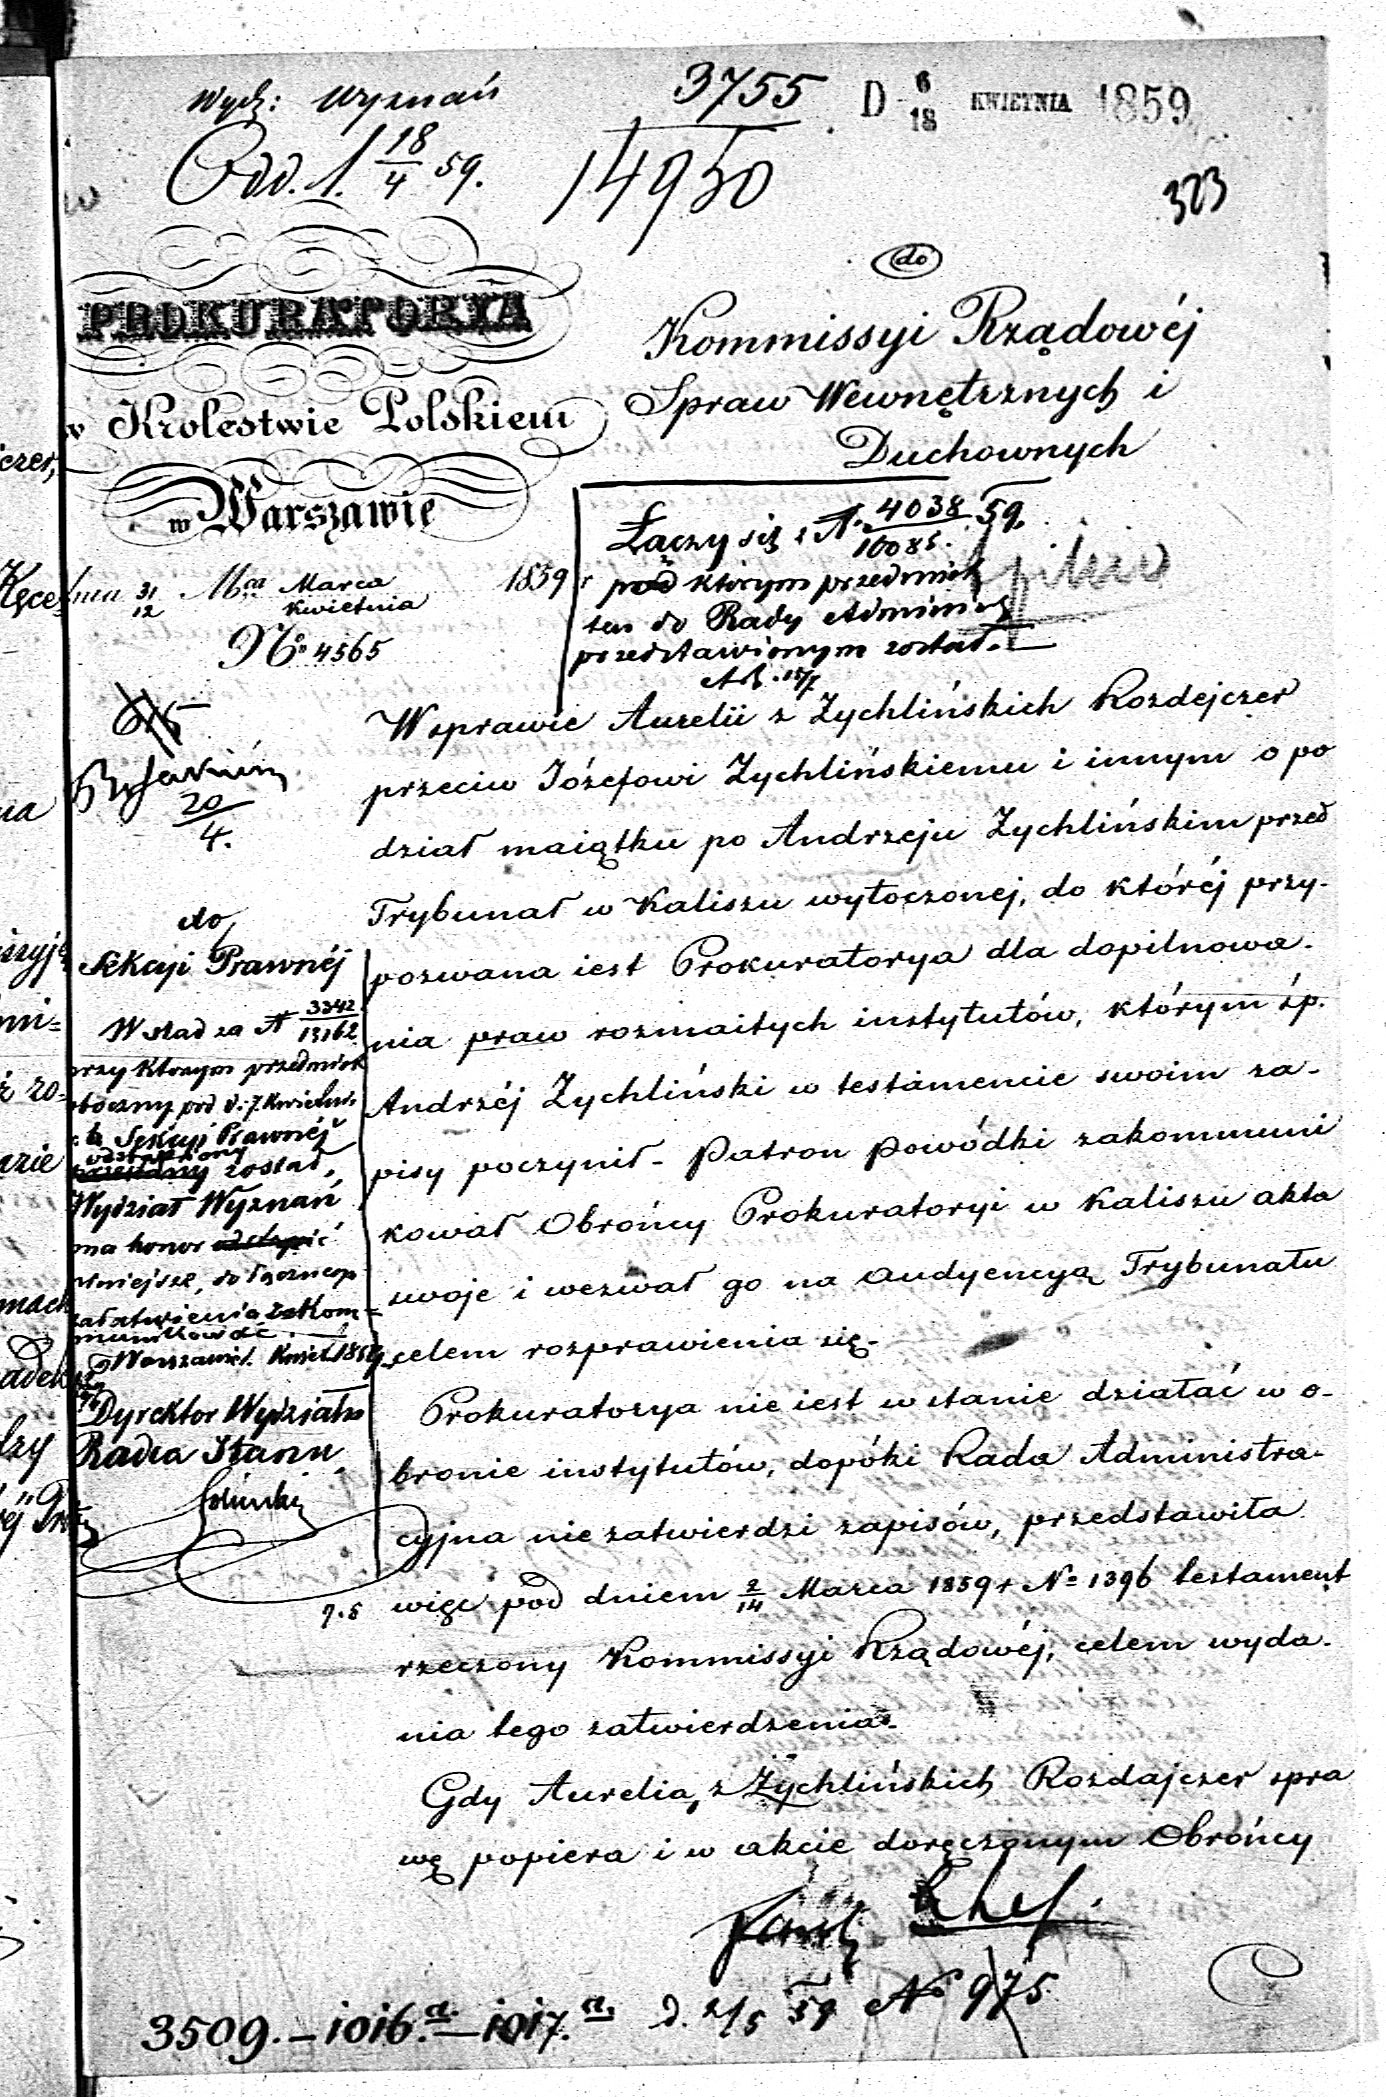 Wydz: Wyznań
Odd. 1. 18/4 59.
3755
14950
D 6/18 KWIETNIA 1859
323
PROKURATORYA
w Krolestwie Polskiem
w Warszawie
dnia 31/12 Mca Marca Kwietnia 1859 r
No 4565
do
Kommissyi Rządowéj
Spraw Wewnętrznych i
Duchownych
Łączy się z N. 4038/10085. 59.
pod którym przedmiot
ten do Rady Administ
przedstawionym został.
pilno
20/4.
do
Sekcyi Prawnéj
W ślad za N 3342/13162
przy którym przedmiot
oboczny pod d. 7. Kwietnia
Sekcyi Prawnéj
odstąpiony
przesłany został,
Wydział Wyznań
ma honor odstąpić
niniejsze, do łącznego
załatwienia zakom=
munikować.
Warszawie d. Kwiet. 1859
Dyrektor Wydziału
Radca Stanu
7.5
W sprawie Aurelii z Zychlińskich Rozdejczer
przeciw Józefowi Zychlińskiemu i innym o po
dział maiątku po Andrzeju Zychlińskim przed
Trybunał w Kaliszu wytoczonej, do któréj przy-
pozwana iest Prokuratorya dla dopilnowa-
nia praw rozmaitych instytutów, którym śp.
Andrzéj Zychliński w testamencie swoim za-
pisy poczynił - Patron Powódki zakommuni
kował Obrońcy Prokuratoryi w Kaliszu akta
swoje i wezwał go na Audyencyą Trybunału
celem rozprawienia się.-
Prokuratorya nie iest w stanie działać w o-
bronie instytutów, dopóki Rada Administra-
cyjna nie zatwierdzi zapisów, przedstawiła
więc pod dniem 2/14 Marca 1859 r No 1396 testament
rzeczony Kommissyi Rządowéj, celem wyda-
nia tego zatwierdzenia.-
Gdy Aurelia z Zychlińskich Rozdajczer spra
wę popiera i w akcie doręczonym Obrońcy
3509.-1016.a-1017.a d. 2/5 59 No 975